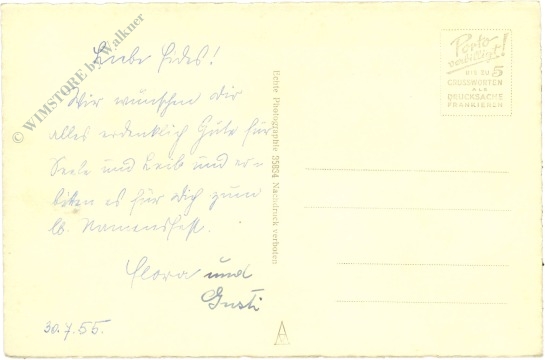 © WIMSTORE by Walkner
Liebe Fides!
Wir wünschen dir
alles erdenklich Gute für
Seele und Leib und er=
bitten es für dich zum
lb. Namensfest.
Flora und
Gusti
30.7.55.
Echte Photographie 35834 Nachdruck verboten
Porto
verbilligt!
BIS ZU 5
GRUSSWORTEN
ALS
DRUCKSACHE
FRANKIEREN